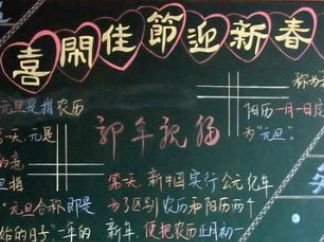 喜闹佳節迎新春
元旦是指农历
天、元是
旦指
"元旦"合称即是
始的日子"一年的
新年祝福
第一天、新中国实行公元纪年
为了区别农历和阳历两个
新年，便把农历正月初一
称为
阳历一月一日定
为"元旦"。